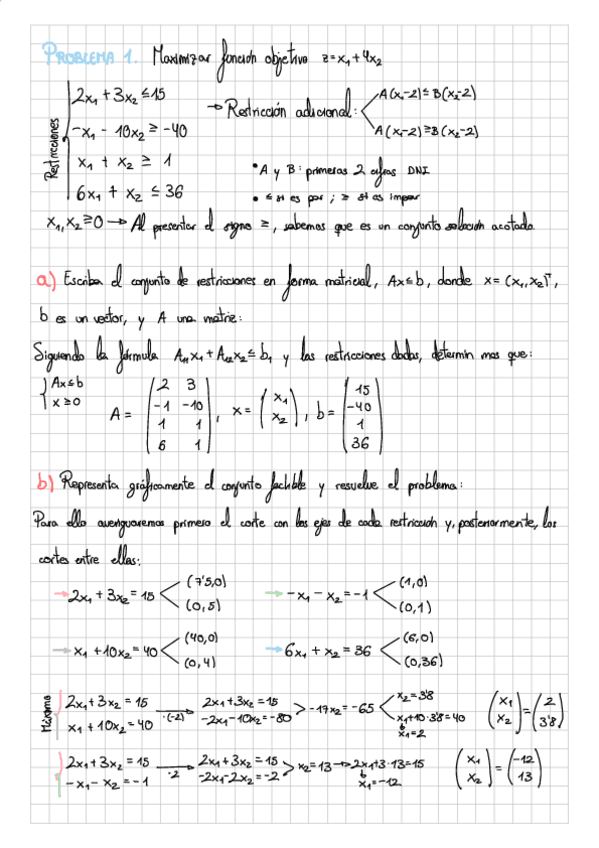 PROBLEMA 1. Maximizar función objetivo z=x₁+4x₂
Restricciones
2x₁+3x₂≤15
-x₁-10x₂≥-40
x₁+x₂≥1
6x₁+x₂≤36
→Restricción adicional:
A(x₁-2)≤B(x₂-2)
A(x₁-2)≥B(x₂-2)
• A y B: primeras 2 cifras DNI
• ≤ si es par; ≥ si es impar
x₁,x₂≥0→Al presentar el signo ≥, sabemos que es un conjunto solución acotado.
a) Escriba el conjunto de restricciones en forma matricial, Ax≤b, donde x=(x₁,x₂)ᵀ,
b es un vector, y A una matriz:
Siguiendo la fórmula A₁₁x₁+A₁₂x₂≤b₁ y las restricciones dadas, determin mos que:
Ax≤b
x≥0
A= (2 3 / -1 -10 / 1 1 / 6 1), x= (x₁ / x₂), b= (15 / -40 / 1 / 36)
b) Representa gráficamente el conjunto factible y resuelve el problema:
Para ello averiguaremos primero el corte con los ejes de cada restricción y, posteriormente, los
cortes entre ellas:
→2x₁+3x₂=15 (7'5,0) (0,5)
→-x₁-x₂=-1 (1,0) (0,1)
→x₁+10x₂=40 (40,0) (0,4)
→6x₁+x₂=36 (6,0) (0,36)
Máximo
2x₁+3x₂=15 2x₁+3x₂=15 x₂=3'8
x₁+10x₂=40 ·(-2) -2x₁-10x₂=-80 -17x₂=-65 x₁+10·3'8=40 x₁=2 (x₁ / x₂)=(2 / 3'8)
2x₁+3x₂=15 2x₁+3x₂=15
-x₁-x₂=-1 ·2 -2x₁-2x₂=-2 x₂=13→2x₁+3·13=15 x₁=-12 (x₁ / x₂)=(-12 / 13)